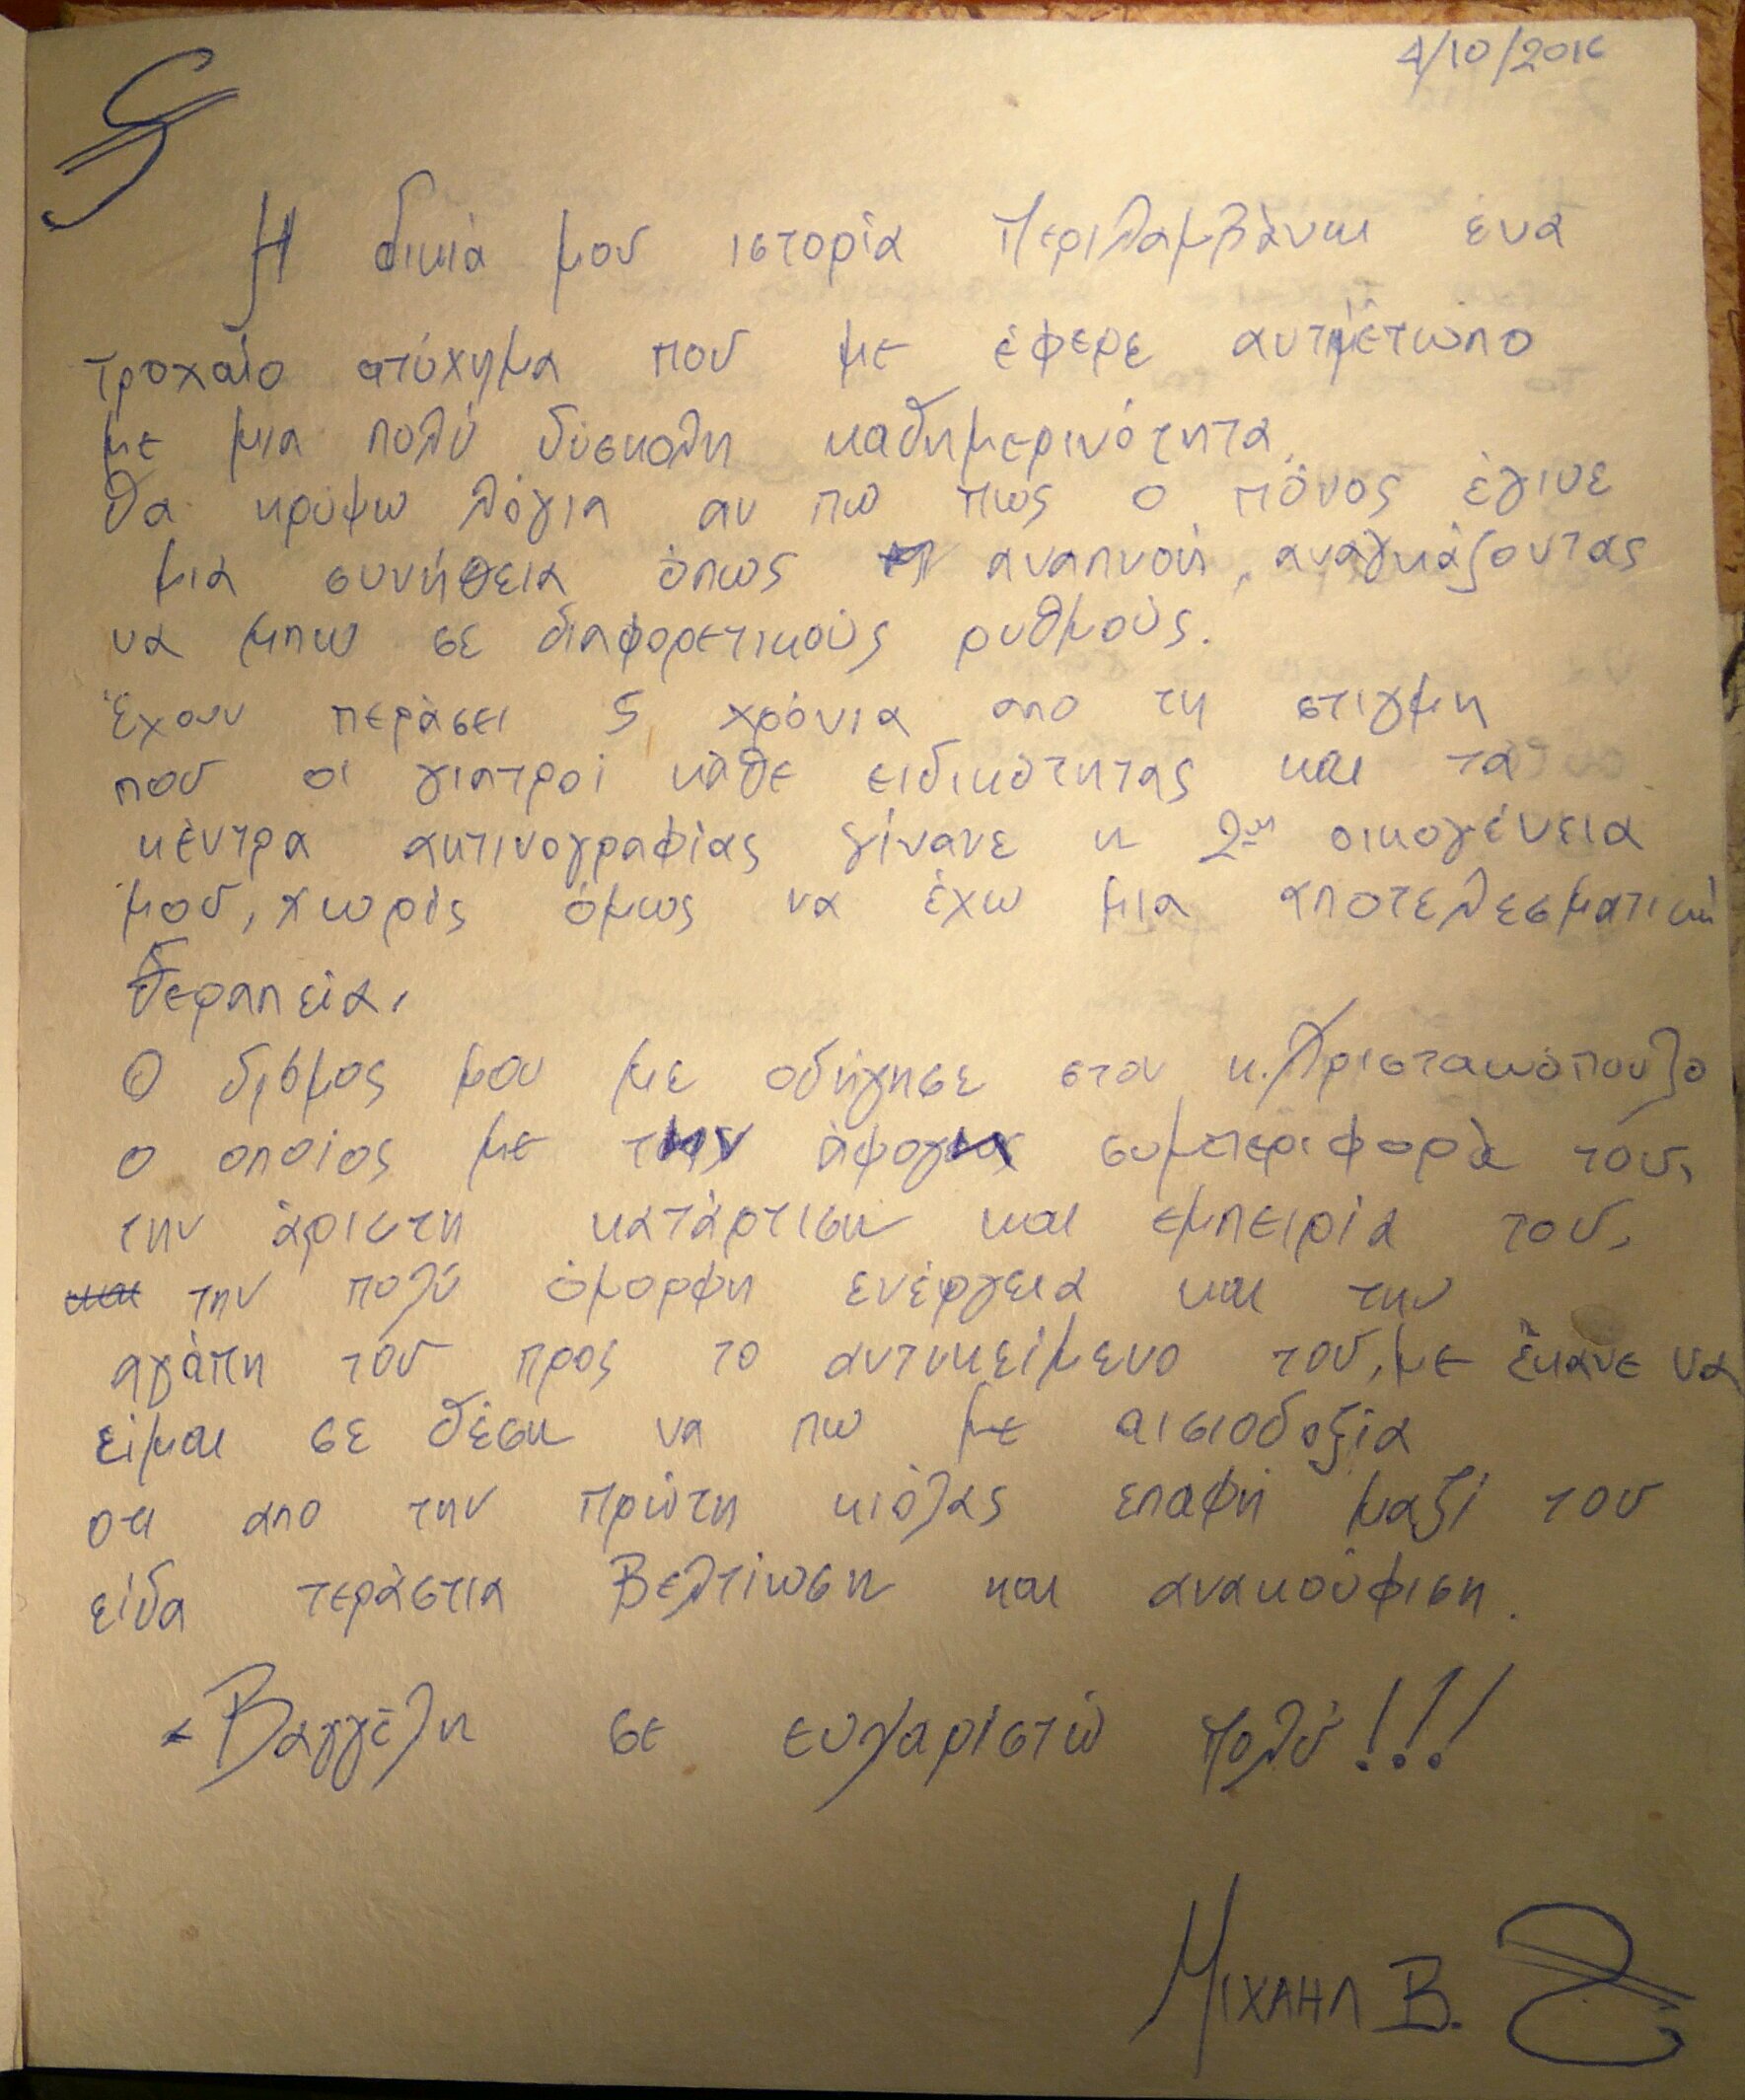 4/10/2016
Η δικιά μου ιστορία περιλαμβάνει ένα
τροχαίο ατύχημα που με έφερε αντιμέτωπο
με μια πολύ δύσκολη καθημερινότητα.
Θα κρύψω λόγια αν πω πως ο πόνος έγινε
μια συνήθεια όπως η αναπνοή, αναγκάζοντας
να μπω σε διαφορετικούς ρυθμούς.
Έχουν περάσει 5 χρόνια απο τη στιγμη
που οι γιατροί κάθε ειδικότητας και τα
κέντρα ακτινογραφίας γίνανε η 2η οικογένεια
μου, χωρίς όμως να έχω μια αποτελεσματική
θεραπεία.
Ο δρόμος μου με οδήγησε στον κ. Χριστακόπουλο
ο οποίος με την άψογη συμπεριφορά του,
την άριστη κατάρτιση και εμπειρία του,
και την πολύ όμορφη ενέργεια και την
αγάπη του προς το αντικείμενο του, με έκανε να
είμαι σε θέση να πω με αισιοδοξία
οτι απο την πρώτη κιόλας επαφή μαζί του
είδα τεράστια Βελτίωση και ανακούφιση.
- Βαγγέλη σε ευχαριστώ πολύ!!!
ΜΙΧΑΗΛ Β.